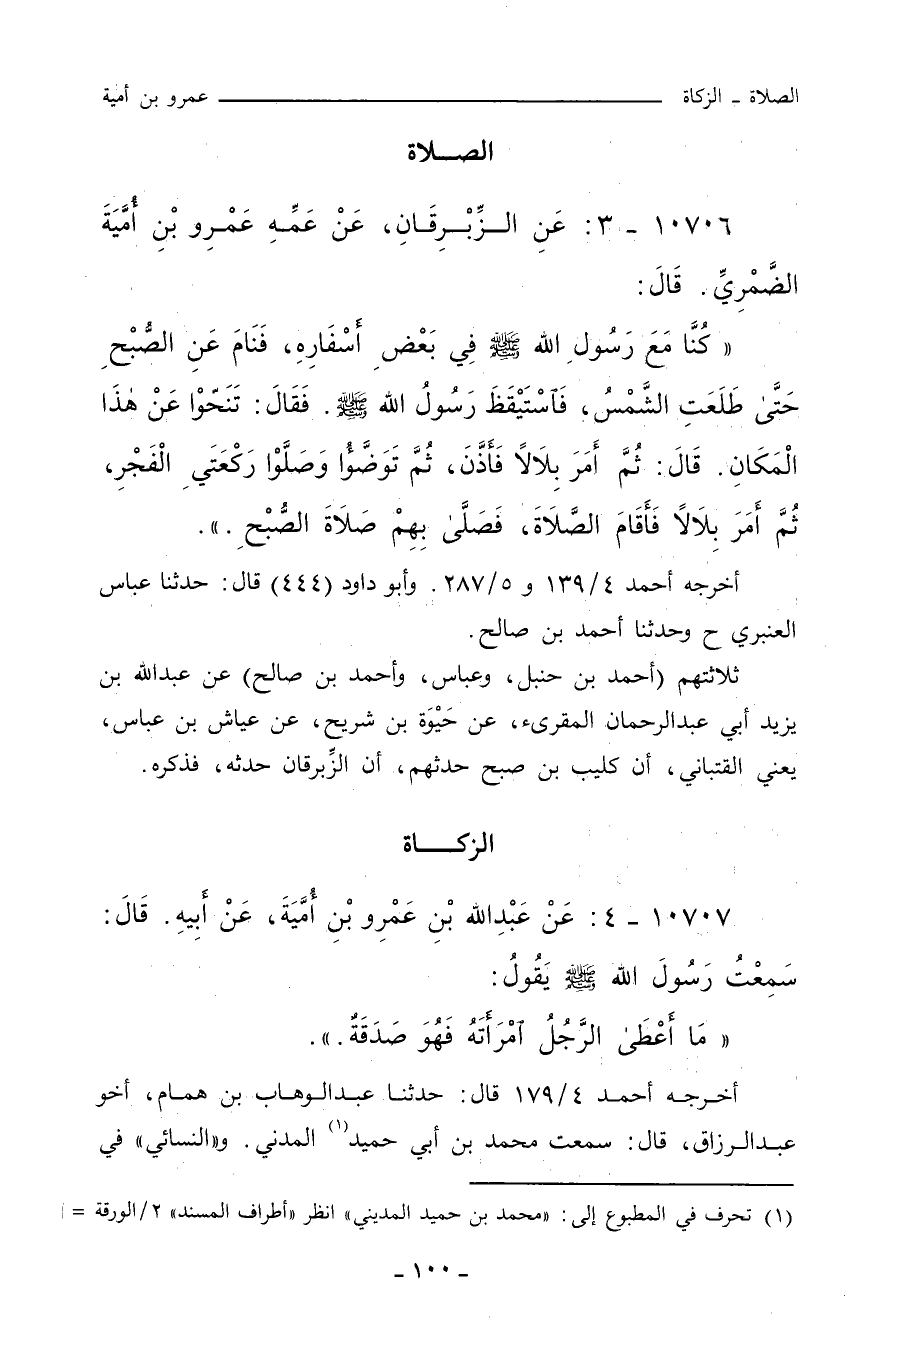 الصلاة ـ الزكاة ــــــــــــــ عمرو بن أمية
الصــلاة
١٠٧٠٦ ـ ٣: عَنِ الــزِّبْــرِقَــانِ، عَنْ عَمِّــهِ عَمْــرِو بْنِ أُمَّيَةَ
الضَّمْرِيِّ. قَالَ:
« كُنَّا مَعَ رَسُولِ الله ﷺ فِي بَعْضِ أَسْفَارِهِ، فَنَامَ عَنِ الصُّبْحِ
حَتَّىٰ طَلَعَتِ الشَّمْسُ، فَٱسْتَيْقَظَ رَسُولُ الله ﷺ. فَقَالَ: تَنَحَّوْا عَنْ هٰذَا
الْمَكَانِ. قَالَ: ثُمَّ أَمَرَ بِلَالًا فَأَذَّنَ، ثُمَّ تَوَضَّؤُا وَصَلَّوْا رَكْعَتَيِ الْفَجْرِ،
ثُمَّ أَمَرَ بِلَالًا فَأَقَامَ الصَّلَاةَ، فَصَلَّىٰ بِهِمْ صَلَاةَ الصُّبْحِ.».
أخرجه أحمد ١٣٩/٤ و ٢٨٧/٥. وأبو داود (٤٤٤) قال: حدثنا عباس
العنبري ح وحدثنا أحمد بن صالح.
ثلاثتهم (أحمد بن حنبل، وعباس، وأحمد بن صالح) عن عبدالله بن
يزيد أبي عبدالرحمان المقرىء، عن حَيْوَة بن شريح، عن عياش بن عباس،
يعني القتباني، أن كليب بن صبح حدثهم، أن الزِّبرقان حدثه، فذكره.
الزكــاة
١٠٧٠٧ ـ ٤: عَنْ عَبْدِالله بْنِ عَمْرِو بْنِ أُمَّيَةَ، عَنْ أَبِيهِ. قَالَ:
سَمِعْتُ رَسُولَ الله ﷺ يَقُولُ:
« مَا أَعْطَىٰ الرَّجُلُ ٱمْرَأَتَهُ فَهُوَ صَدَقَةٌ.».
أخــرجــه أحمــد ١٧٩/٤ قال: حدثنــا عبــدالــوهــاب بن همــام، أخو
عبــدالــرزاق، قال: سمعت محمد بن أبي حميد(١) المدني. و«النسائي» في
(١) تحرف في المطبوع إلى: «محمد بن حميد المديني» انظر «أطراف المسند» ٢/الورقة =
ـ ١٠٠ ـ